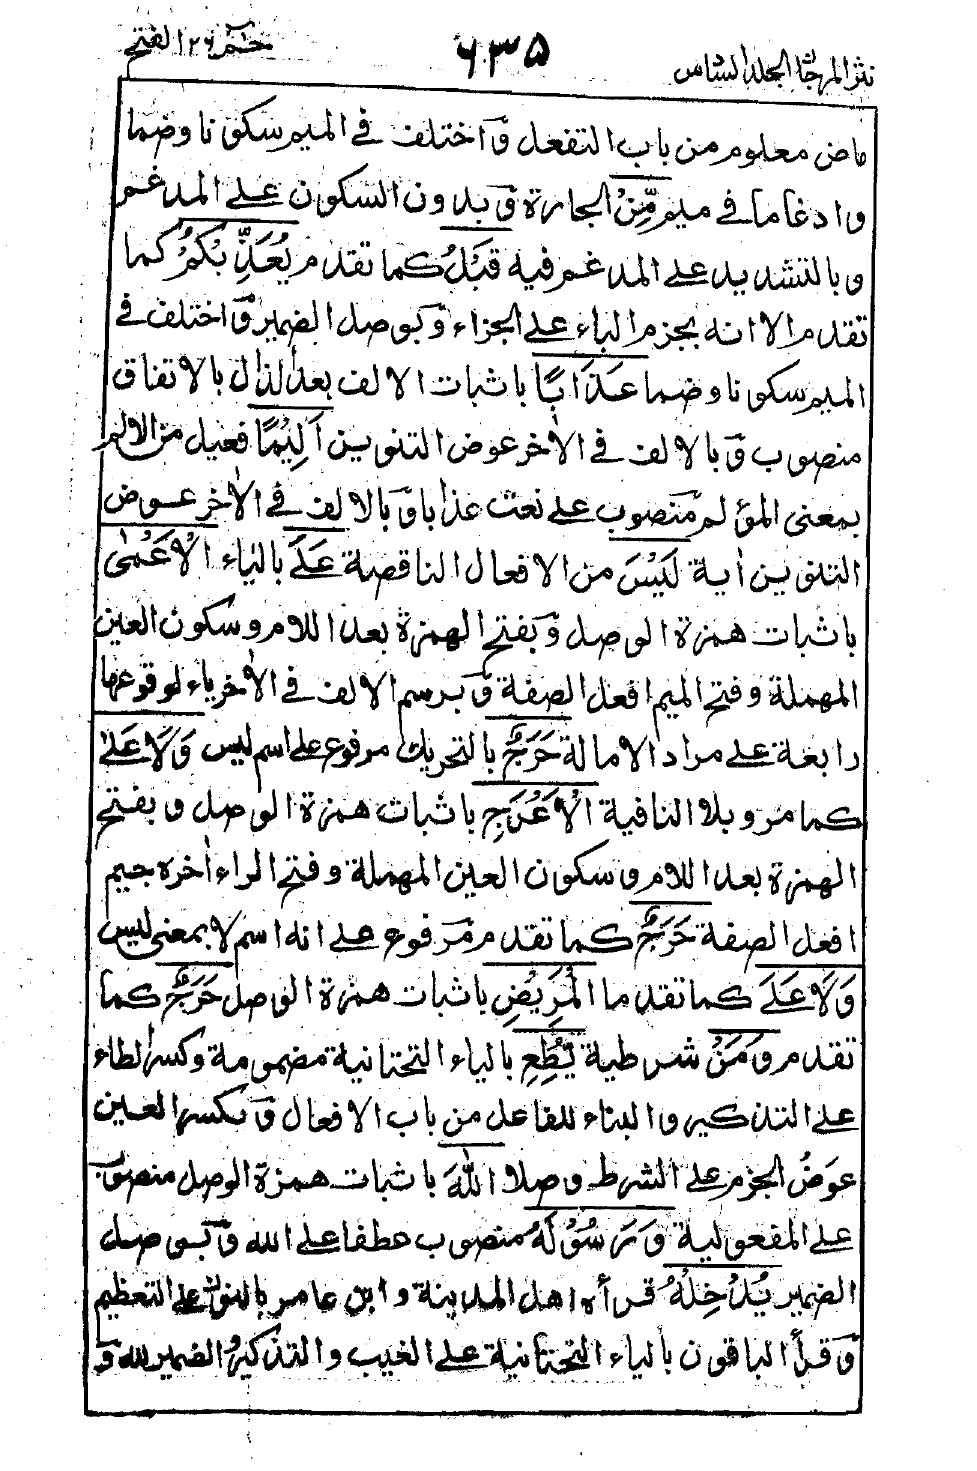 نثر المرجان المجلد السادس
٦٣٥
حٰمٓ ٢٦ الفتح
ماض معلوم من باب التفعل وَٓاختلف فے الميم سكونا وضما
وادغاما فے ميم مِّنْ الجارة وَٓبدون السكون علے المدغم
وبالتشديد علے المدغم فيه قَبْلُ كما تقدم يُعَذِّبْكُمْ كما
تقدم الا انه بجزم الباء علے الجزاء وَٓبوصل الضمير وَٓاختلف فے
الميم سكونا وضما عَذَابًا باثبات الالف بعد الذال بالاتفاق
منصوب وَٓبالالف فے الاٰخر عوض التنوين اَلِيْمًا فعيل من الالم
بمعنى المؤلم منصوب علے نعت عذابا وَٓبالالف فے الاٰخر عوض
التنوين اٰية لَيْسَ من الافعال الناقصة عَلَے بالياء الْاَعْمٰى
باثبات همزة الوصل وَٓبفتح الهمزة بعد اللام وسكون العين
المهملة وفتح الميم افعل الصفة وَٓبرسم الالف فے الاٰخر ياء لوقوعها
رابعة علے مراد الامالة حَرَجٌ بالتحريك مرفوع على اسم ليس وَلَا عَلَے
كما مر وبلا النافية الْاَعْرَجِ باثبات همزة الوصل وبفتح
الهمزة بعد اللام وسكون العين المهملة وفتح الراء اٰخره جيم
افعل الصفة حَرَجٌ كما تقدم مرفوع علے انه اسم لا بمعنى ليس
وَلَا عَلَے كما تقدما الْمَرِيْضِ باثبات همزة الوصل حَرَجٌ كما
تقدم وَمَنْ شرطية يُّطِعِ بالياء التحتانية مضمومة وكسر الطاء
علے التذكير والبناء للفاعل من باب الافعال وَٓبكسر العين
عوض الجزم علے الشرط وصلا اللّٰهَ باثبات همزة الوصل منصوب
علے المفعولية وَرَسُوْلَهٗ منصوب عطفا علے الله وَٓبوصل
الضمير يُدْخِلْهُ قرأه اهل المدينة وابن عامر بالنون علے التعظيم
وَٓقرأ الباقون بالياء التحتانية علے الغيب والتذكير والضمير لله وَٓ